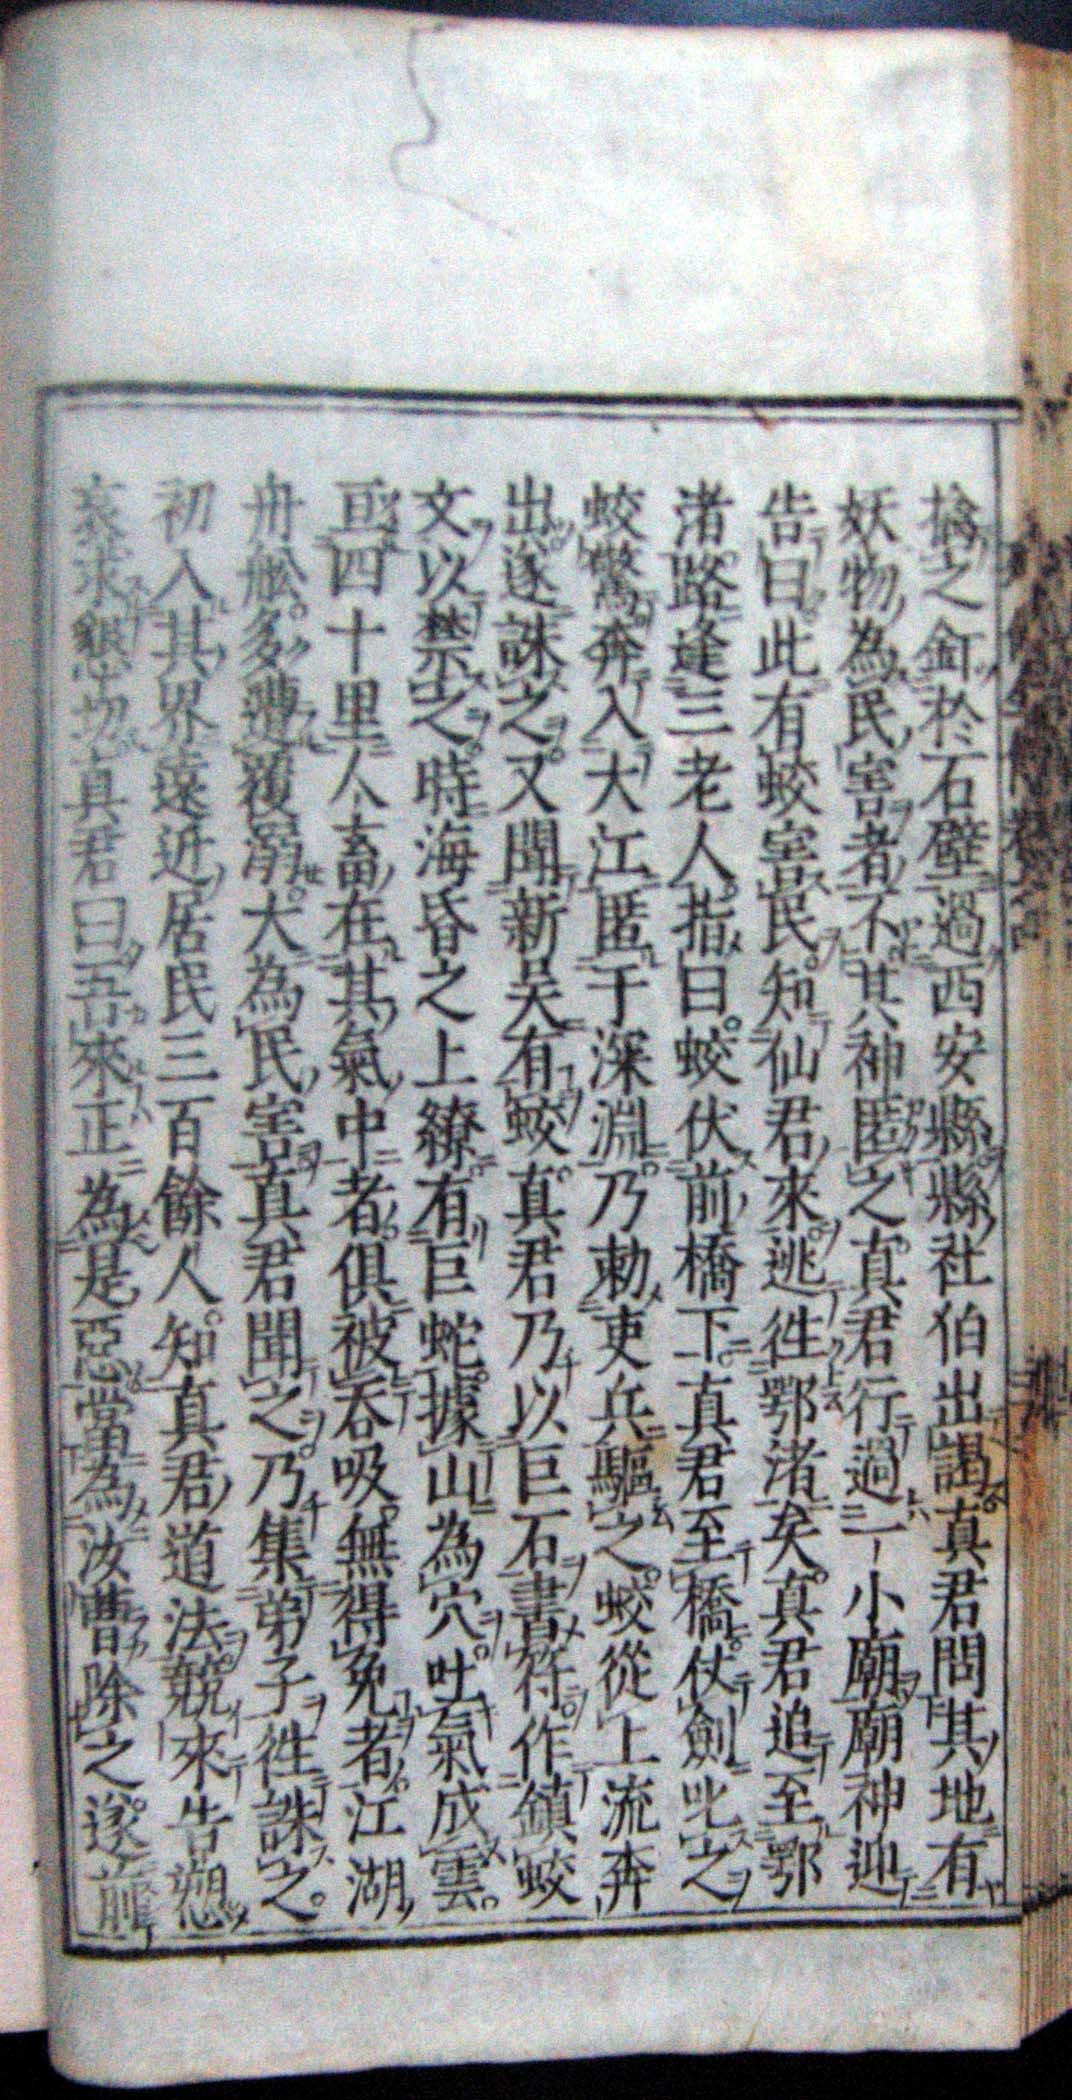 擒之釘於石壁過西安縣縣社伯出謁真君問其地有
妖物為民害者不其神匿之真君行過一小廟廟神迎
告曰此有蛟害民知仙君來逃徃鄂渚矣真君追至鄂
渚路逢三老人指曰蛟伏前橋下真君至橋仗劍叱之
蛟驚奔入大江匿于深淵乃勅吏兵驅之蛟從上流奔
出遂誅之又聞新吴有蛟真君乃以巨石書符作鎮蛟
文以禁之時海昏之上繚有巨蛇據山為穴吐氣成雲
亘四十里人畜在其氣中者俱被吞吸無得免者江湖
舟舩多遭覆溺大為民害真君聞之乃集弟子徃誅之
初入其界遠近居民三百餘人知真君道法競來告愬
哀求懇切真君曰吾來正為是惡當為汝曹除之遂前